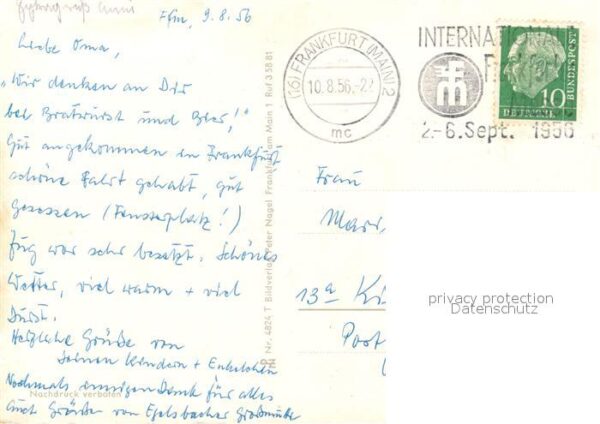 Ffm, 9.8.56
Liebe Oma,
"Wir denken an Dir
bei Bratwurst und Bier!"
Gut angekommen in Frankfurt
schöne Fahrt gehabt, gut
gesessen (Fensterplatz!)
Zug war sehr besetzt. Schönes
Wetter, viel warm + viel
Durst.
Herzliche Grüße von
Deinen Kindern + Enkelchen
Nochmals innigen Dank für alles
Auch Grüße von Egelsbacher Großmutter
Nachdruck verboten
Nr. 4824 T Bildverlag Peter Nagel Frankfurt am Main 1 Ruf 35881
(16) FRANKFURT (MAIN) 2
10.8.56.-22
mc
INTERNATIONALE
2.-6. Sept. 1956
DEUTSCHE BUNDESPOST
10
Frau
Marr,
13a Ki
Post
privacy protection
Datenschutz